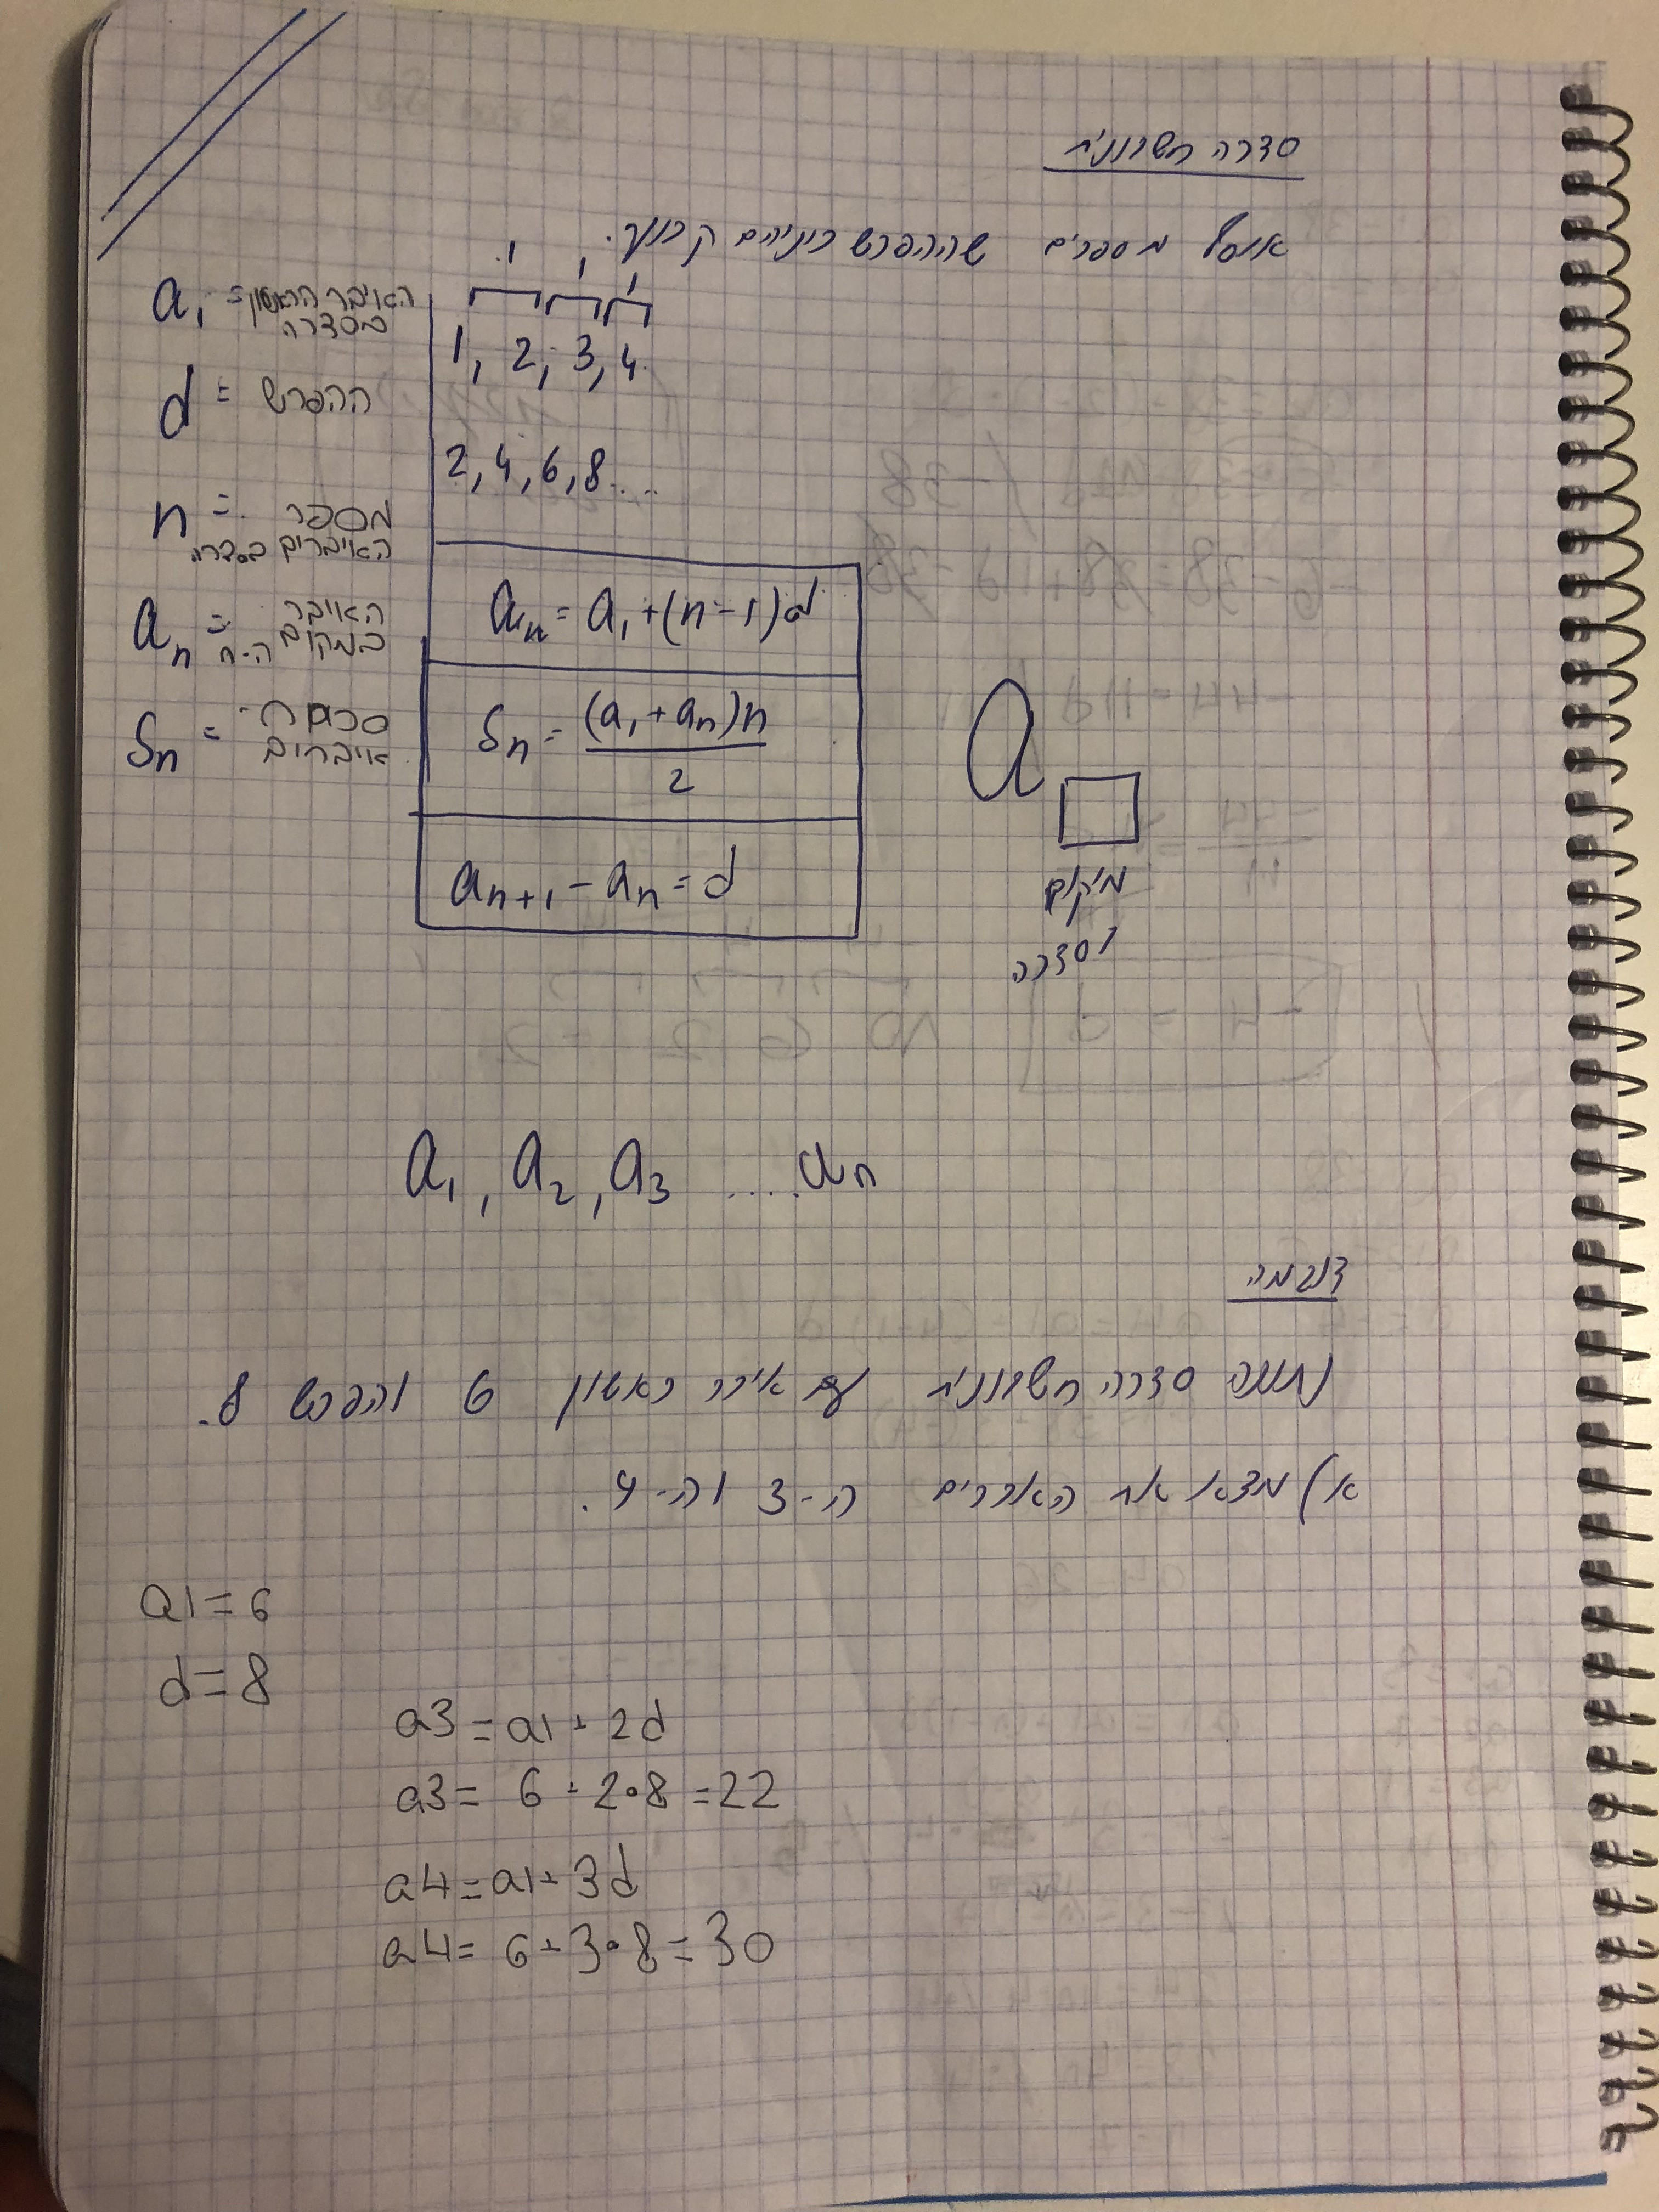 סדרה חשבונית
אוסף מספרים שההפרש ביניהם קבוע.
a₁ = האויבר הראשון
בסדרה
d = ההפרש
n = מספר
האויברים בסדרה
aₙ = האויבר
במקום ה-n
Sₙ = סכום ה-
אויברים
1 1 1
1, 2, 3, 4
2, 4, 6, 8....
aₙ = a₁ + (n-1)d
Sₙ = (a₁ + aₙ)n / 2
aₙ₊₁ - aₙ = d
a□
מיקום
בסדרה
a₁, a₂, a₃ .....aₙ
דוגמה
נתונה סדרה חשבונית עם איבר ראשון 6 והפרש 8.
א) מצא את האברים ה-3 וה-4.
a1=6
d=8
a3=a1+2d
a3= 6+2•8=22
a4=a1+3d
a4= 6+3•8=30